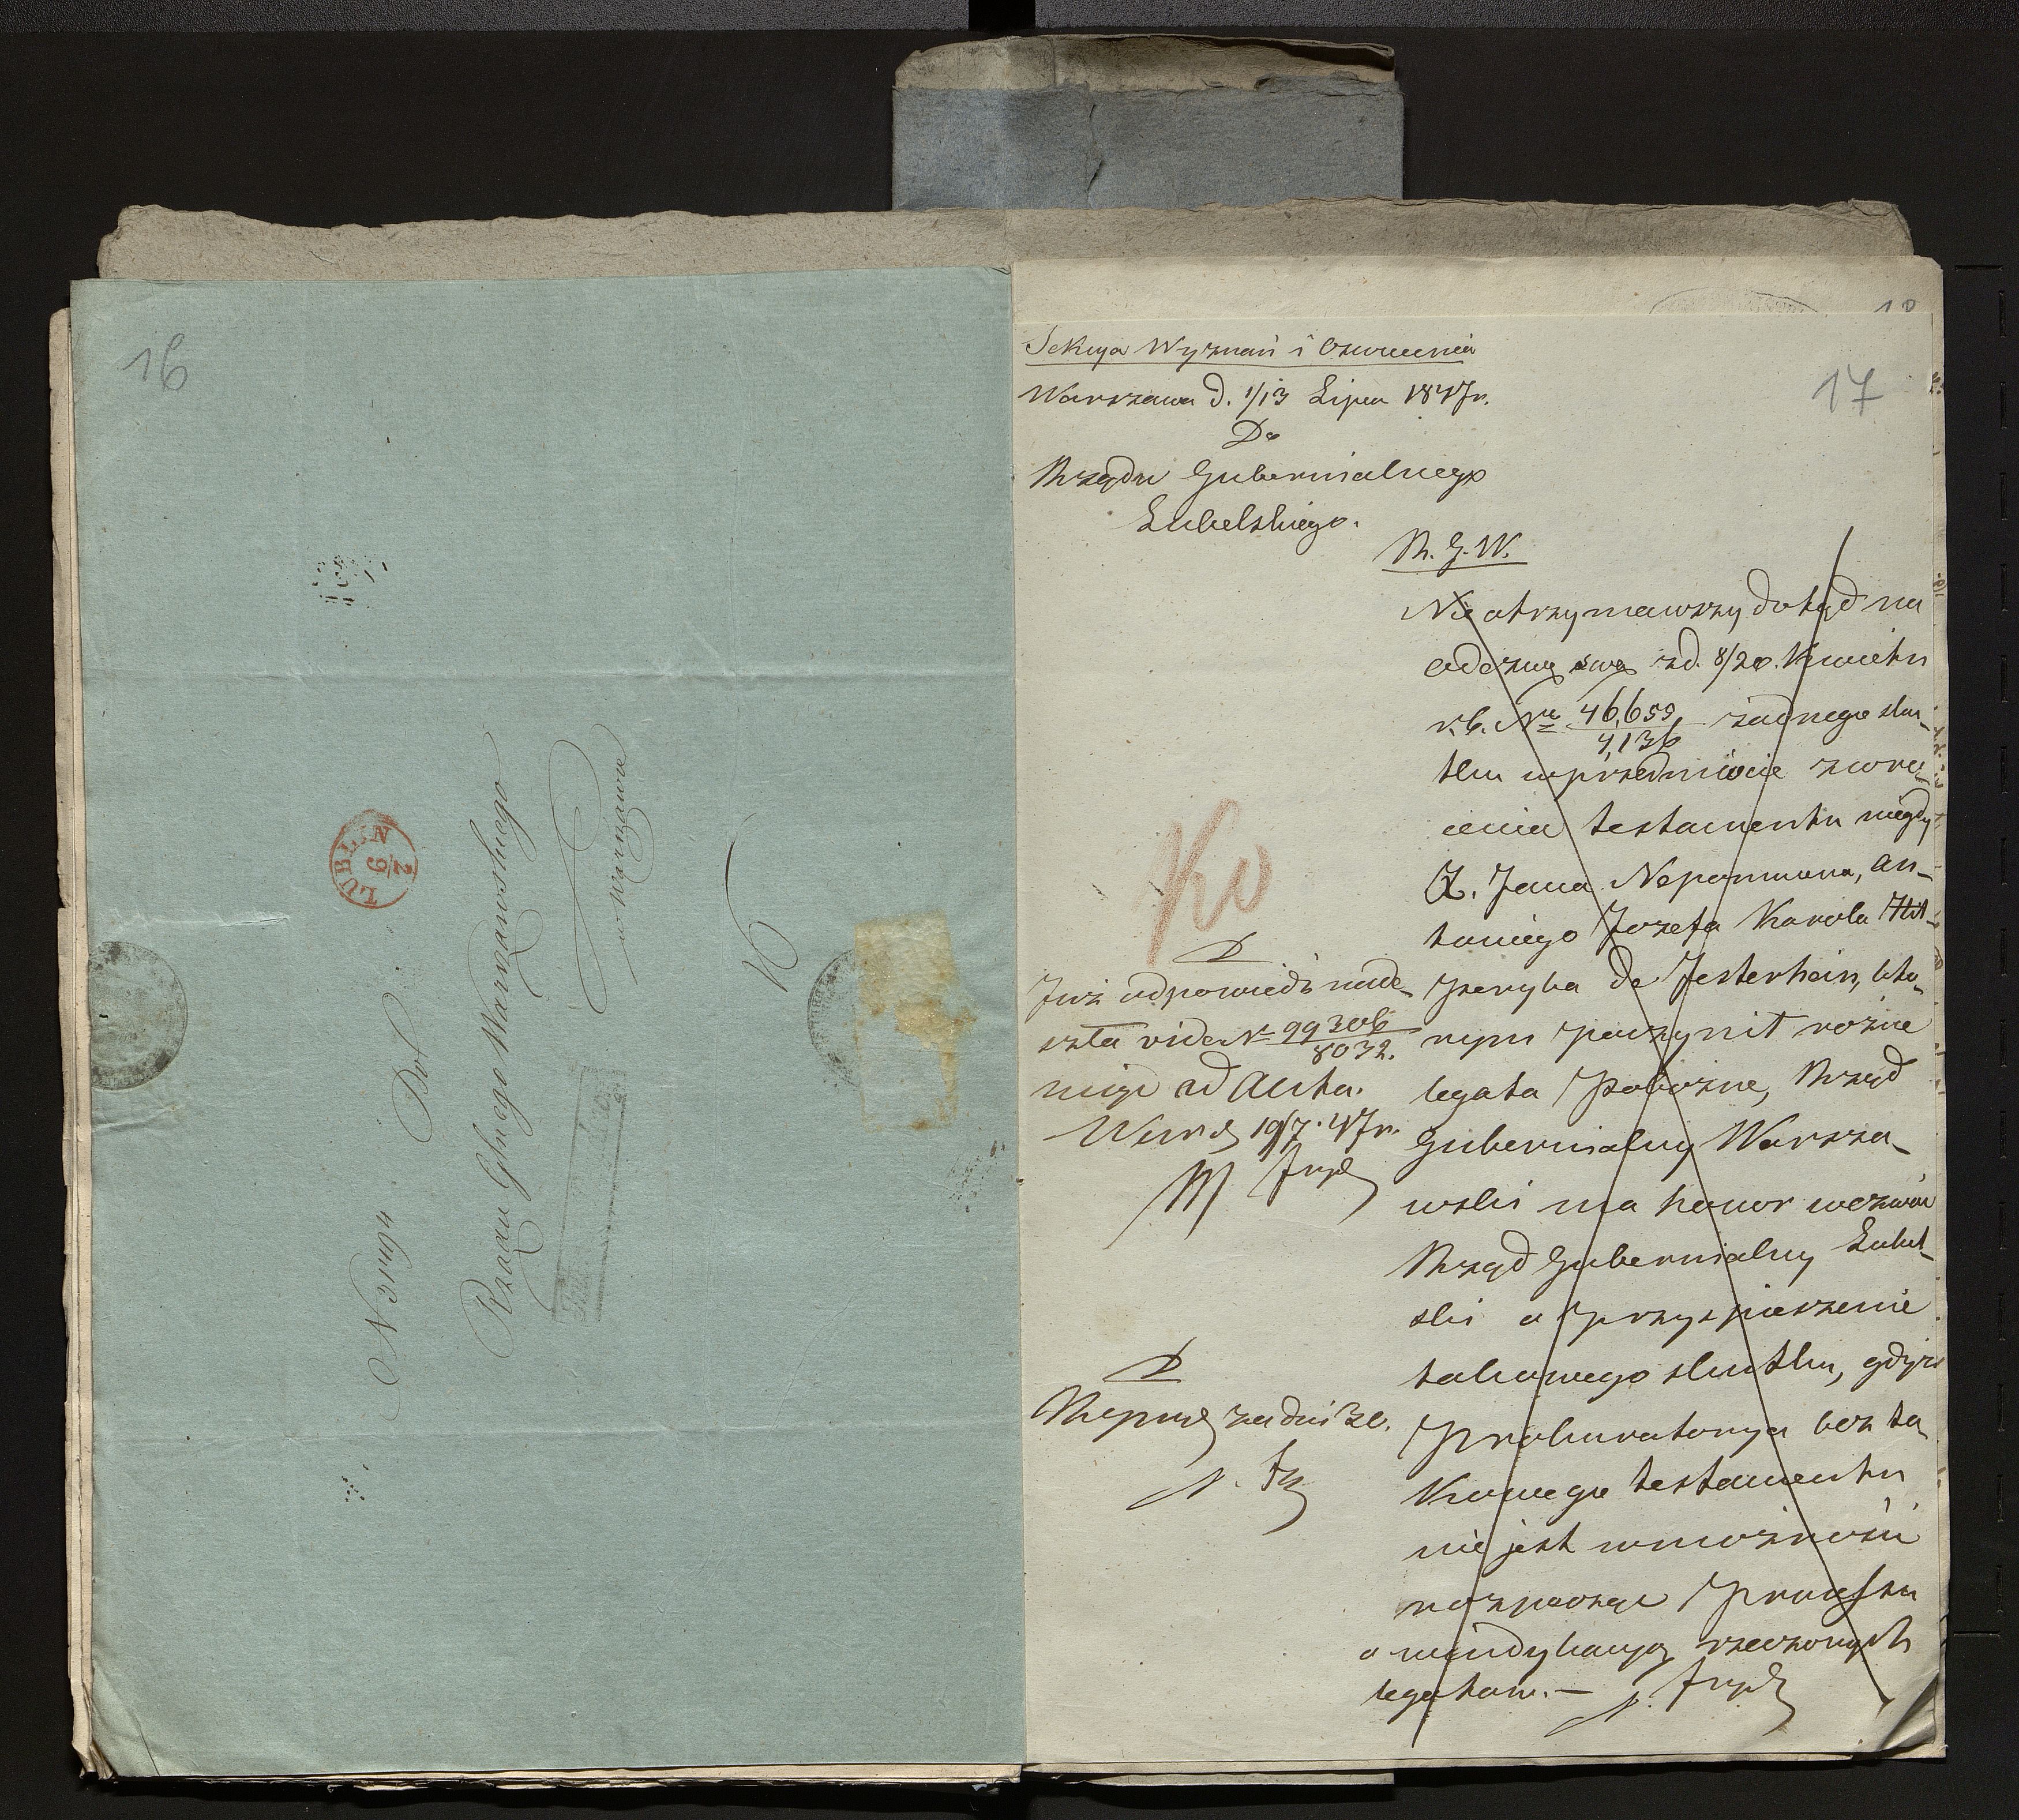 16
LUBLIN
6/2
N 31194
Do
Rządu Glnego Warszawskiego
w Warszawie
17
Sekcya Wyznań i Oświecenia
Warszawa d. 1/13 Lipca 1847 r.
Do
Rządu Gubernialnego
Lubelskiego.
R. G. W.
Nie otrzymawszy dotąd na
odezwę swą z d. 8/20. Kwietn
r. b. Nr 46,659/4,136 żadnego sku-
tku w przedmiocie zwró-
cenia testamentu niegdy
X. Jana Nepomucena, An-
toniego Józefa Karola
de Jesterhein, któ-
rym poczynił rożne
legata pobożne, Rząd
Gubernialny Warsza-
wski ma honor wezwać
Rząd Gubernialny Lubel-
ski o przyspieszenie
takowego skutku, gdyż
Prokuratorya bez ta
kowego testamentu
nie jest w możności
rozpocząć Processu
o windykacyą rzeczonych
legatow. —
Ko
D
Już odpowiedź nade-
szła vide N 99306/8032.
niższ ad Acta.
19/7. 47 r.
D
za dni 30.